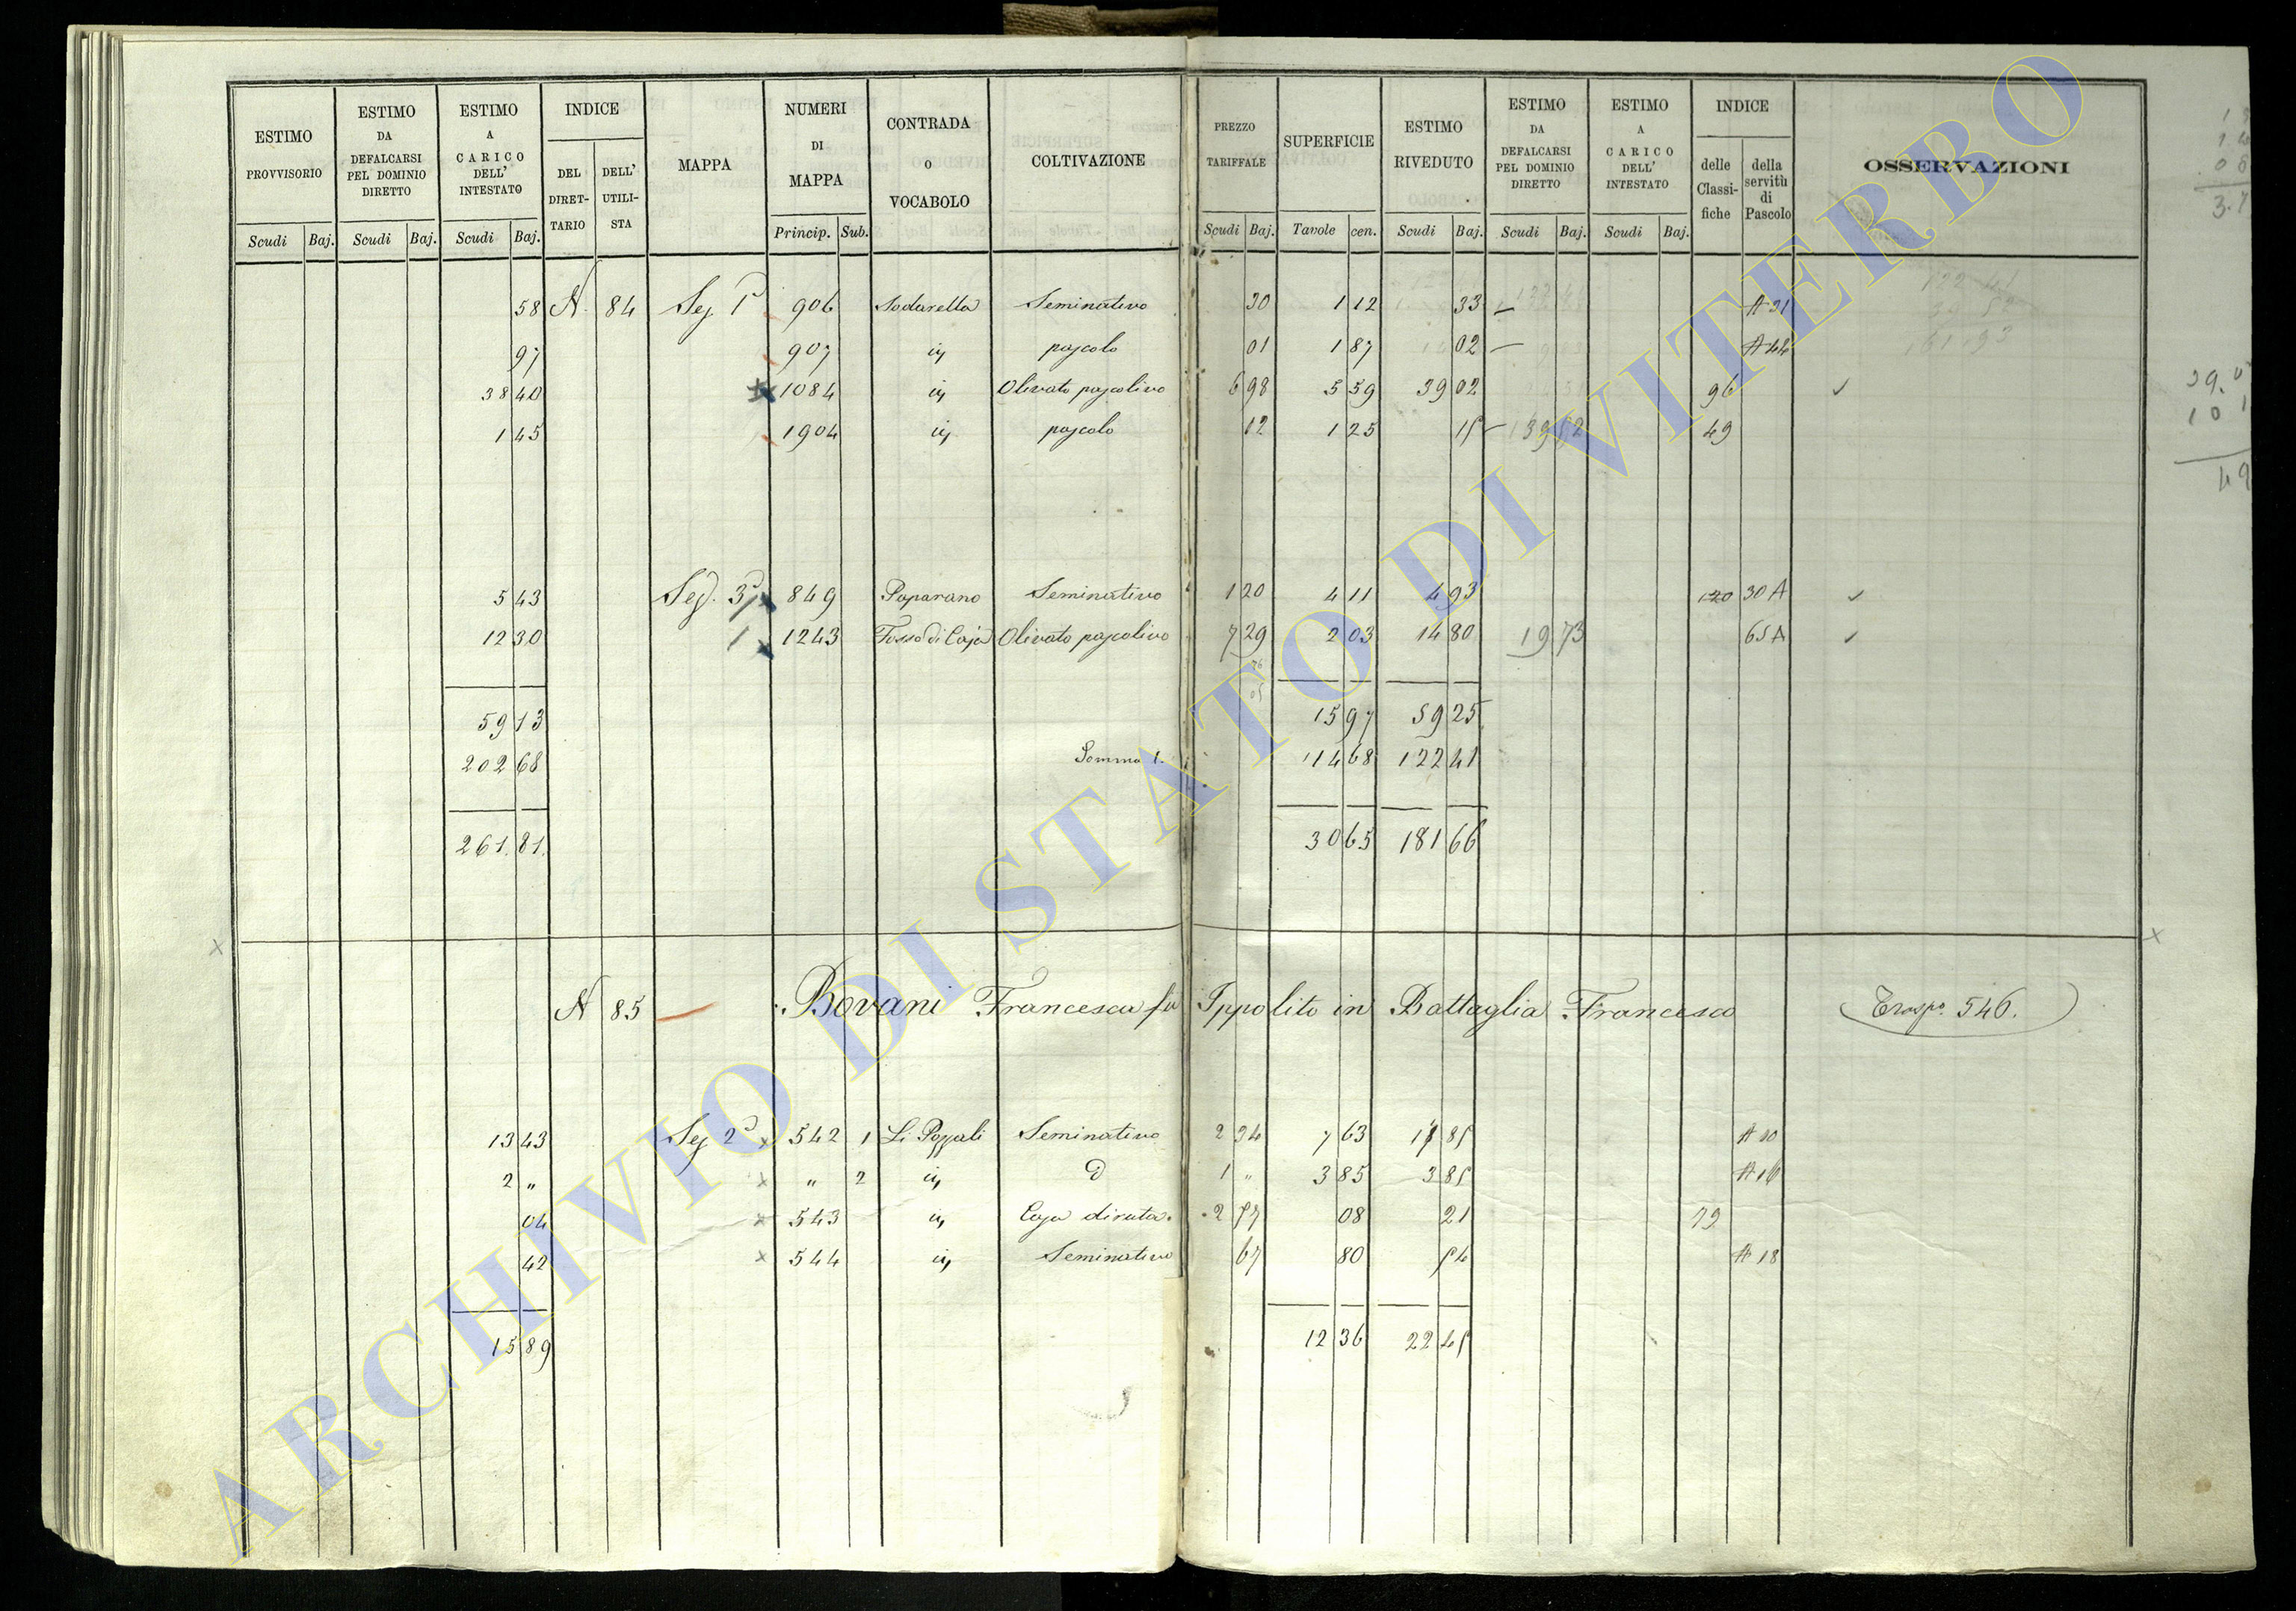 ESTIMO PROVVISORIO | ESTIMO DA DEFALCARSI PEL DOMINIO DIRETTO | ESTIMO A CARICO DELL' INTESTATO | INDICE DEL DIRETTARIO | DELL' UTILISTA | MAPPA | NUMERI DI MAPPA | CONTRADA O VOCABOLO | COLTIVAZIONE | PREZZO TARIFFALE | SUPERFICIE | ESTIMO RIVEDUTO | ESTIMO DA DEFALCARSI PEL DOMINIO DIRETTO | ESTIMO A CARICO DELL' INTESTATO | INDICE delle Classifiche | della servitù di Pascolo | OSSERVAZIONI
Scudi Baj. Scudi Baj. Scudi Baj. Princip. Sub. Scudi Baj. Tavole cen. Scudi Baj. Scudi Baj. Scudi Baj.
58 A 84 Sez 1ª 906 Sodarella Seminativo 30 1 12 33 A 31
97 907 iv pascolo 01 1 87 02 A 44
38 40 1084 iv Olivato pascolivo 6 98 5 59 39 02 96
1 45 1904 iv pascolo 12 1 25 15 49
5 43 Sez. 3ª 849 Paparano Seminativo 1 20 4 11 4 93 120 30 A
12 30 1243 Fosso di Caja Olivato pascolivo 7 29 2 03 14 80 19 73 65 A
59 13 15 97 59 25
202 68 Somma 1. 14 68 122 41
261. 81. 30 65 181 66
A 85 Bovani Francesca fu Ippolito in Battaglia Francesco Trasp. 546.
13 43 Sez 2ª 542 1 Li Pozzali Seminativo 2 34 7 63 17 85 A 30
2 „ „ 2 iv D 1 „ 3 85 3 85 A 16
04 543 iv Casa diruta 2 57 08 21 79
42 544 iv Seminativo 67 80 54 A 18
15 89 12 36 22 45
ARCHIVIO DI STATO DI VITERBO